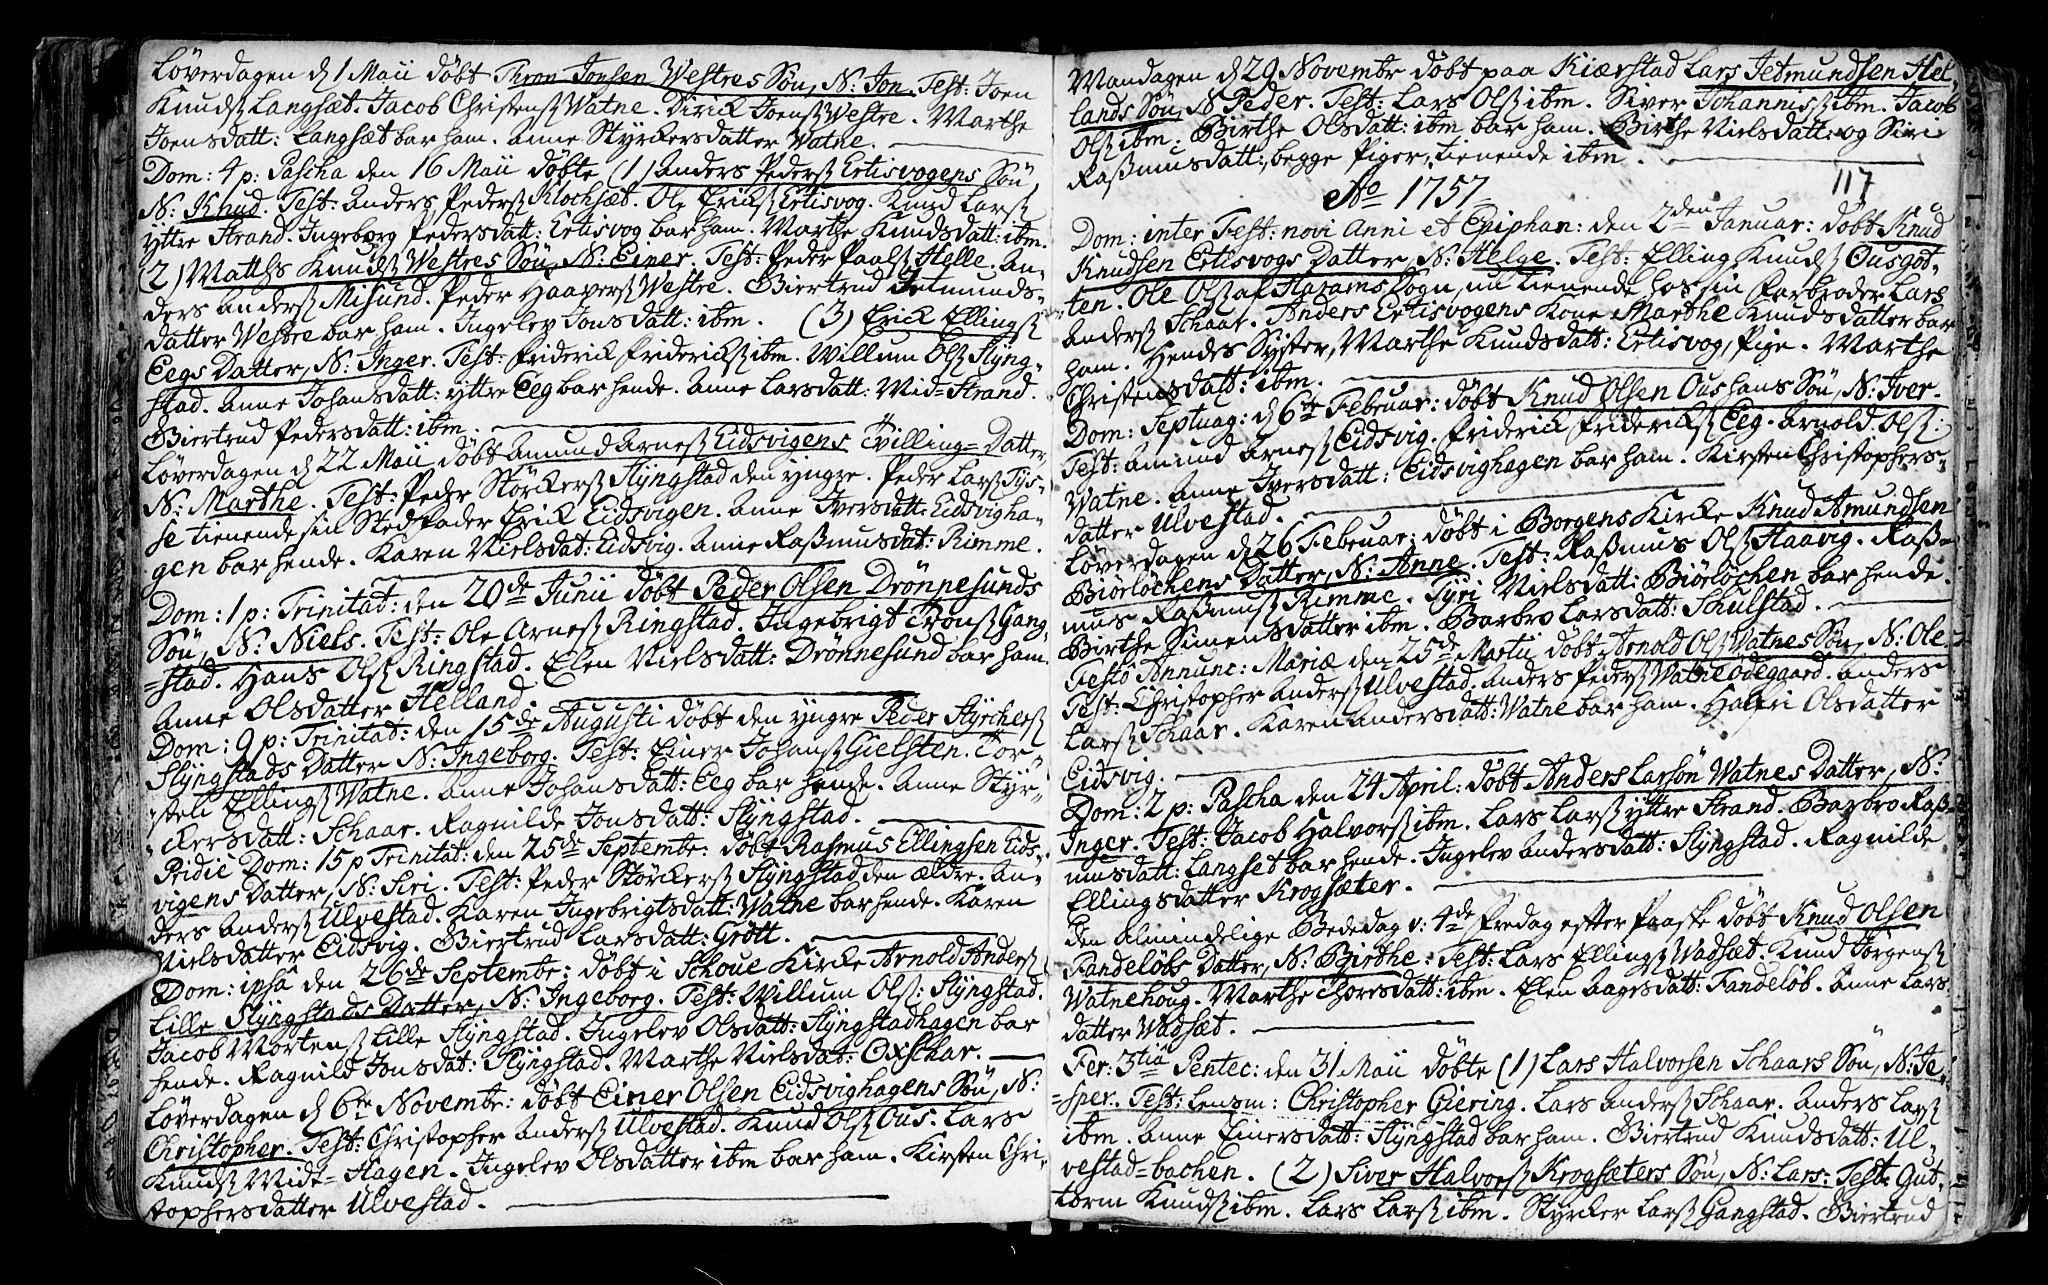 Löverdagen d 1 Maii döbt Thron Jonsen Westres Sön, N: Jon. Test: Joen
Knudsß Langsæt. Jacob Christensß Watne. Dirich Joensß Westre. Marthe
Joensdatt: Langsæt bar ham. Anne Styrkersdatter Watne.
Dom: 4 p: Pascha den 16 Maii döbte (1) Anders Pedersß Ertisvogens Sön
N: Knud. Test: Anders Pedersß Klochsæt. Ole Ericksß Ertisvog. Knud Larsß
yttre Strand. Ingeborg Pedersdatt: Ertisvog bar ham. Marthe Knudsdatt: ibm.
(2) Matthis Knudsß Westres Sön, N: Einer. Test: Peder Paalsß Helle. An-
ders Andersß Misund. Peder Haaversß Westre. Biertrud Jetmunds-
datter Westre bar ham. Ingelev Jonsdatt: ibm. (3) Erick Ellingsß
Eegs Datter, N: Inger. Test: Friderick Fridericksß ibm. Willum Olsß Slyng-
stad. Anne Johansdatt: yttre Eeg bar hende. Anne Larsdatt: Mid=Strand.
Biertrud Pedersdatt: ibm.
Löverdagen d 22 Maii döbt Amund Arnesß Eidsvigens Tvilling=Datter,
N: Marthe. Test: Peder Störkersß Slyngstad den yngre. Peder Larsß Tys-
se tienende sin Stedfader Erick Eidsvigen. Anne Iversdatt: Eidsvigha-
gen bar hende. Karen Nielsdat: Eidsvig. Anne Raßmusdat: Rimme.
Dom: 1 p: Trinitat: den 20de Junii döbt Peder Olsen Drönnesunds
Sön, N: Niels. Test: Ole Arnesß Ringstad. Ingebrigt Tronsß Gang-
=stad. Hans Olsß Ringstad. Elen Nielsdatt: Drönnesund bar ham.
Anne Olsdatter Helland.
Dom: 9 p: Trinitat: den 15de Augusti döbt den yngre Peder Styrchersß
Slyngstads Datter N: Ingeborg. Test: Einer Johansß Gielsten. Tor-
sten Ellingsß Watne. Anne Johansdatt: Eeg bar hende. Anne Styr-
ckersdatt: Schaar. Ragnilde Jonsdatt: Slyngstad.
Pridie Dom: 15 p Trinitat: den 25de Septembr: döbt Rasmus Ellingsen Eids-
vigens Datter, N: Siri. Test: Peder Störkersß Slyngstad den ældre. An-
ders Andersß Ulvestad. Karen Ingebrigtsdatt: Watne bar hende. Karen
Nielsdatter Eidsvig. Biertrud Larsdatt: Grött.
Dom: ipsa den 26de Septembr: döbt i Schoue Kirke Arnold Andersß
Lille Slyngstads Datter, N: Ingeborg. Test: Willum Olsß: Slyngstad.
Jacob Mortensß Lille Slyngstad. Ingelev Olsdatt: Slyngstadhagen bar
hende. Ragnild Jonsdat: Slyngstad. Marthe Nielsdat: Oxschar.
Löverdagen d 6te Novembr: döbt Einer Olsen Eidsvighagens Sön, N:
Christopher. Test: Christopher Andersß Ulvestad. Knud Olsß Ous. Lars
Knudsß Mide=Hagen. Ingelev Olsdatter ibm bar ham. Kirsten Chri-
stophersdatter Ulvestad.
Mandagen d 29 Novembr döbt paa Kiærstad Lars Jetmundsen Hel-
lands Sön, N Peder. Test: Lars Olsß ibm. Siver Johannisß ibm. Jacob
Olsß ibm. Birthe Olsdatt: ibm bar ham. Birthe Nielsdatt: og Siri
Raßmusdatt:, begge Piger, tienende ibm.
117
Ao 1757
Dom: inter Fest: novi Anni et Epiphan: den 2den Januar: döbt Knud
Knudsen Ertisvogs Datter, N: Helge. Test: Elling Knudsß Ousgot-
ten. Ole Olsß af Harams Sogn, nu tienende hos sin Farbroder Lars
Andersß Schaar. Anders Ertisvogens Kone Marthe Knudsdatter bar
ham. Hendes Syster, Marthe Knudsdatt: Ertisvog, Pige. Marthe
Christensdatt: ibm.
Dom: Septuag: d 6te Februar: döbt Knud Olsen Oushans Sön, N: Iver.
Test: Amund Arnesß Eidsvig. Friderick Fridericksß Eeg. Arnold Olsß:
Watne. Anne Iversdatt: Eidsvighagen bar ham. Kirsten Christophers-
datter Ulvestad.
Löverdagen d 26 Februar: döbt i Borgens Kirke Knud Amundsen
Biörlöchens Datter, N: Anne. Test: Raßmus Olsß Haavig. Raß=
mus Raßmusß Rimme. Tyri Nielsdatt: Biörlöchen bar hende.
Birthe Simensdatter ibm. Barbro Larsdatt: Schulstad.
Festo Annunc: Mariæ den 25de Martii döbt Arnold Olsß Watnes Sön, N: Ole.
Test: Christopher Andersß Ulvestad. Anders Pedersß Watneödegaard. Anders
Larsß Schaar. Karen Andersdatt: Watne bar ham. Olsdatter
Eidsvig.
Dom: 2 p: Pascha den 24 April: döbt Anders Larsön Watnes Datter, N:
Inger. Test: Jacob Halvorsß ibm. Lars Larsß yttre Strand. Barbro Raß-
musdatt: Langset bar hende. Ingelev Andersdatt: Slyngstad. Ragnilde
Ellingsdatter Krogsæter.
Den almindelige Bededag v: 4de Fredag efter Paaske döbt Knud Olsen
Fandelöbs Datter, N: Birthe. Test: Lars Ellingsß Wadsæt. Knud Jörgensß
Watnehoug. Marthe Thoresdatt: ibm. Elen Aagesdatt: Fandelöb. Anne Lars
datter Wadsæt.
Fer: 3tia Pentec: den 31 Maii döbte (1) Lars Halvorsen Schaars Sön, N: Je-
=sper. Test: Lensm: Christopher Giering. Lars Andersß Schaar. Anders Larsß
ibm. Anne Einersdatt: Slyngstad bar ham. Biertrud Knudsdatt: Ul-
vestad=bachen. (2) Siver Halvorsß Krogsæters Sön, N: Lars: Test: Gut-
torm Knudsß ibm. Lars Larsß ibm. Styrcker Larsß Gangstad. Biertrud